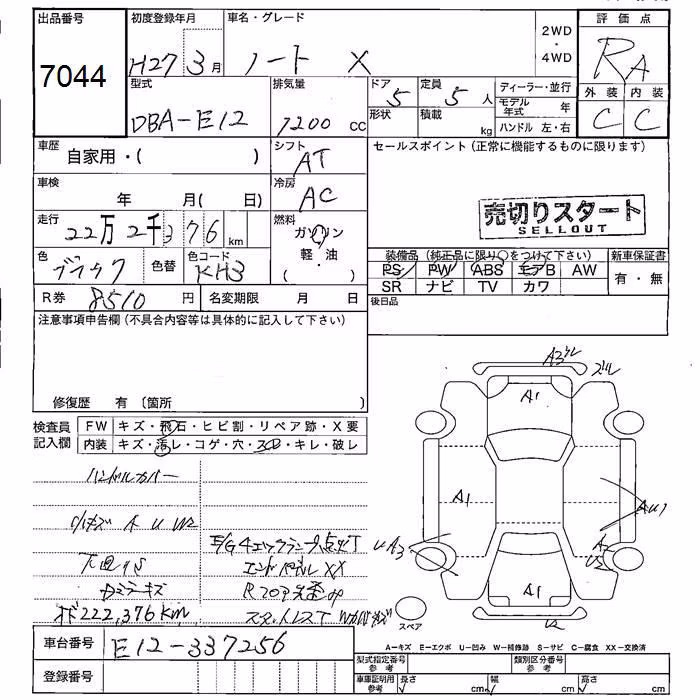 出品番号
7044
初度登録年月
H27 3月
車名・グレード
ノート X
2WD
・
4WD
評価点
RA
外装 内装
C C
型式
DBA-E12
排気量
1200 cc
ドア
5
定員
5人
形状
積載
kg
ディーラー・並行
モデル年式 年
ハンドル 左・右
車歴
自家用・( )
シフト
AT
セールスポイント(正常に機能するものに限ります)
車検
年 月( 日)
冷房
AC
売切りスタート
SELLOUT
走行
22万2千376km
燃料
ガソリン
軽・油
装備品(純正品に限り○をつけて下さい)
新車保証書
色
ブラック
色替
色コード
KH3
PS PW ABS エアB AW
SR ナビ TV カワ
有・無
R券 8510円
名変期限 月 日
後日品
注意事項申告欄(不具合内容等は具体的に記入して下さい)
修復歴 有 〔箇所 〕
検査員
記入欄
FW キズ・飛石・ヒビ割・リペア跡・X要
内装 キズ・汚レ・コゲ・穴・スレ・キレ・破レ
ハンドルカバー
小キズ A U W2
下廻りS
E/Gチェックランプ点灯
エンドパネルXX
Rフロア歪み
オド222,376km
A1
A1
A1
A1
U2
スペア
車台番号
E12-337256
登録番号
A-キズ E-エクボ U-凹み W-補修跡 S-サビ C-腐食 XX-交換済
型式指定番号
参考
類別区分番号
参考
車庫証明用
参考
長さ cm
幅 cm
高さ cm